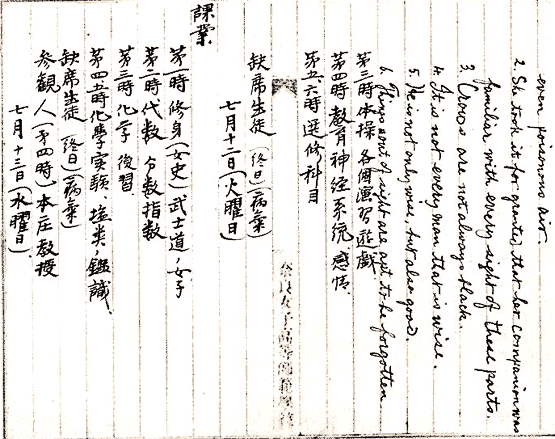 even poisonous air.
2. She took it for granted that her companion was
familiar with every sight of these parts.
3. Crows are not always black.
4. It is not every man that is wise.
5. He is not only wise, but also good.
6. Things out of sight are apt to be forgotten.
第三時体操 各個演習 遊戯
第四時教育 神経系統、感情
第五、六時選修科目
奈良女子高等師範學校
缺席生徒(終日)(病氣)
七月十二日(火曜日)
課業
第一時修身(女史)武士道、女子
第二時代数 分数指数
第三時化学 復習
第四五時化學実験、塩類、鑑識
缺席生徒(終日)(病氣)
参観人(第四時)本庄教授
七月十三日(水曜日)